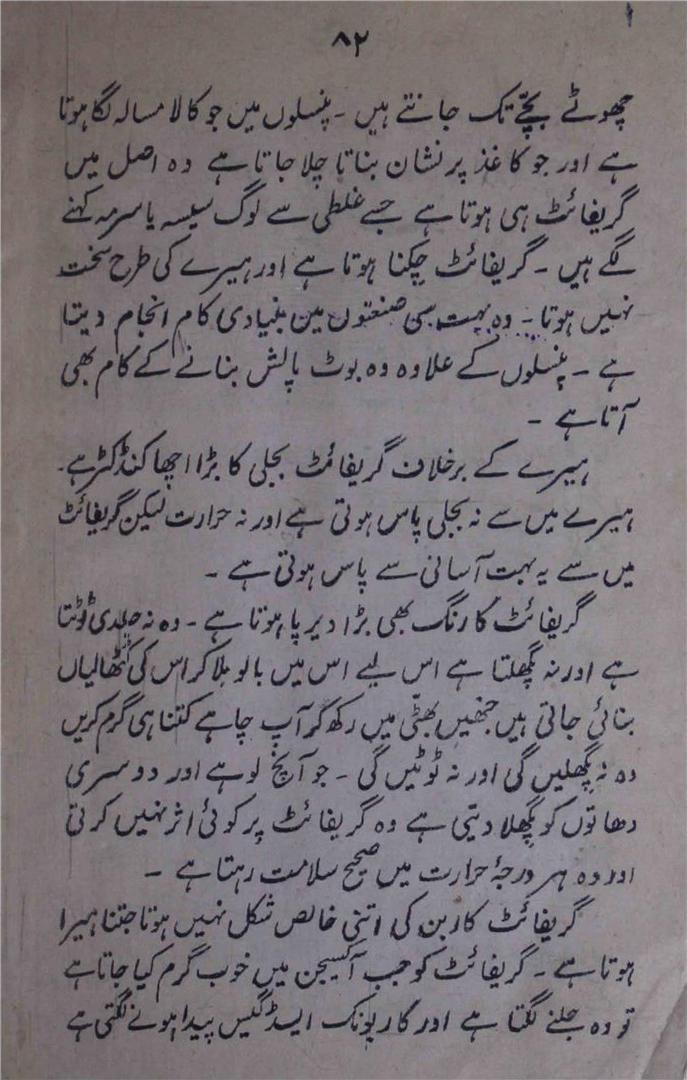 ۸۲
چھوٹے بچے تک جانتے ہیں ۔ پنسلوں میں جو کالا مسالہ لگا ہوتا
ہے اور جو کاغذ پر نشان بناتا چلا جاتا ہے وہ اصل میں
گریفائٹ ہی ہوتا ہے جسے غلطی سے لوگ سیسہ یا سرمہ کہنے
لگے ہیں ۔ گریفائٹ چکنا ہوتا ہے اور ہیرے کی طرح سخت
نہیں ہوتا ۔ وہ بہت سی صنعتوں میں بنیادی کام انجام دیتا
ہے ۔ پنسلوں کے علاوہ وہ بوٹ پالش بنانے کے کام بھی
آتا ہے ۔
ہیرے کے برخلاف گریفائٹ بجلی کا بڑا اچھا کنڈکٹر ہے ۔
ہیرے میں سے نہ بجلی پاس ہوتی ہے اور نہ حرارت لیکن گریفائٹ
میں سے یہ بہت آسانی سے پاس ہوتی ہے ۔
گریفائٹ کا رنگ بھی بڑا دیرپا ہوتا ہے ۔ وہ نہ جلدی ٹوٹتا
ہے اور نہ پگھلتا ہے اس لیے اس میں بالو ملا کر اس کی کٹھالیاں
بنائی جاتی ہیں جنھیں بھٹی میں رکھ کر آپ چاہے کتنا ہی گرم کریں
وہ نہ پگھلیں گی اور نہ ٹوٹیں گی ۔ جو آنچ لوہے اور دوسری
دھاتوں کو پگھلا دیتی ہے وہ گریفائٹ پر کوئی اثر نہیں کرتی
اور وہ ہر درجۂ حرارت میں صحیح سلامت رہتا ہے ۔
گریفائٹ کاربن کی اتنی خالص شکل نہیں ہوتا جتنا ہیرا
ہوتا ہے ۔ گریفائٹ کو جب آکسیجن میں خوب گرم کیا جاتا ہے
تو وہ جلنے لگتا ہے اور کاربونک ایسڈ گیس پیدا ہونے لگتی ہے